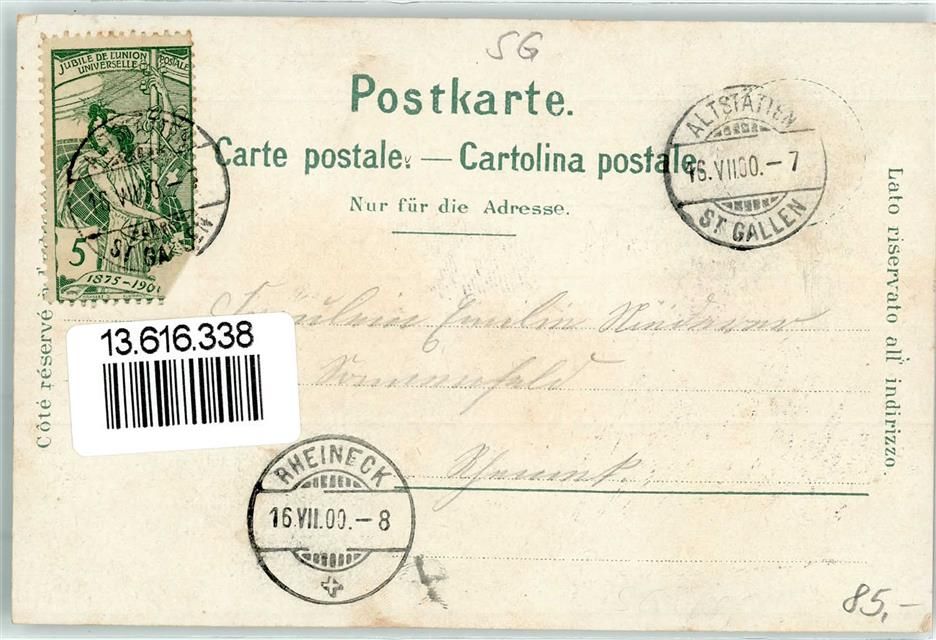 SG
JUBILE DE L'UNION POSTALE
UNIVERSELLE
5
1875-190
ST GALLEN
Postkarte.
Carte postale. — Cartolina postale.
Nur für die Adresse.
ALTSTÄTTEN
16.VII.00.-7
ST GALLEN
Côté réservé à
Lato riservato all' indirizzo.
13.616.338
Fräulein Emilie Niederer
Sonnenfeld
RHEINECK
16.VII.00.-8
85,-